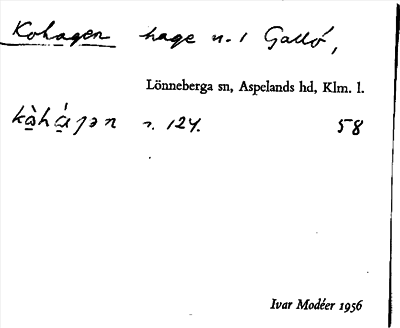 Kohagen hage n. 1 Galló,
Lönneberga sn, Aspelands hd, Klm. l.
s. 124. 58
Ivar Modéer 1956